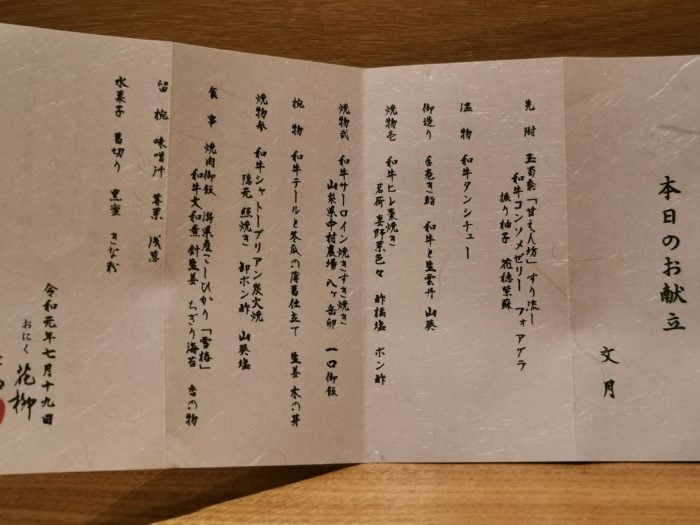 本日のお献立
文月
先附 玉蜀黍「甘えん坊」すり流し
和牛コンソメゼリー フォアグラ
振り柚子 花穂紫蘇
温物 和牛タンシチュー
御造り 手巻き鮨 和牛と塩雲丹 山葵
焼物壱 和牛ヒレ藁焼き
茗荷 夏野菜色々 酢橘塩 ポン酢
焼物弐 和牛サーロイン焼きすき焼き
山梨県中村農場 八ヶ岳卵 一口御飯
椀物 和牛テールと冬瓜の薄葛仕立て 生姜 木の芽
焼物参 和牛シャトーブリアン炭火焼
隠元 照焼き 卸ポン酢 山葵塩
食事 焼肉御飯 潟県産こしひかり「雪椿」
和牛大和煮 針生姜 ちぎり海苔 香の物
留椀 味噌汁 蓴菜 浅葱
水菓子 葛切り 黒蜜 きな粉
令和元年七月十九日
おにく 花柳